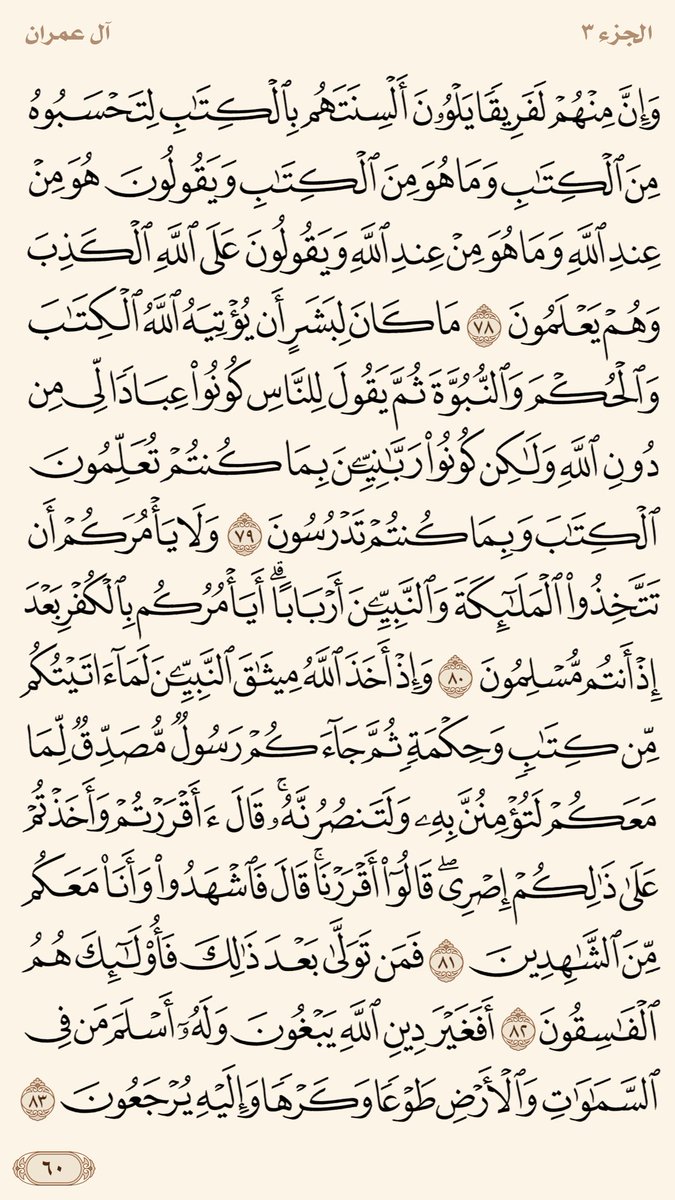 الجزء ٣
آل عمران
وَإِنَّ مِنۡهُمۡ لَفَرِيقٗا يَلۡوُۥنَ أَلۡسِنَتَهُم بِٱلۡكِتَٰبِ لِتَحۡسَبُوهُ
مِنَ ٱلۡكِتَٰبِ وَمَا هُوَ مِنَ ٱلۡكِتَٰبِ وَيَقُولُونَ هُوَ مِنۡ
عِندِ ٱللَّهِ وَمَا هُوَ مِنۡ عِندِ ٱللَّهِ وَيَقُولُونَ عَلَى ٱللَّهِ ٱلۡكَذِبَ
وَهُمۡ يَعۡلَمُونَ ٧٨ مَا كَانَ لِبَشَرٍ أَن يُؤۡتِيَهُ ٱللَّهُ ٱلۡكِتَٰبَ
وَٱلۡحُكۡمَ وَٱلنُّبُوَّةَ ثُمَّ يَقُولَ لِلنَّاسِ كُونُواْ عِبَادٗا لِّي مِن
دُونِ ٱللَّهِ وَلَٰكِن كُونُواْ رَبَّٰنِيِّـۧنَ بِمَا كُنتُمۡ تُعَلِّمُونَ
ٱلۡكِتَٰبَ وَبِمَا كُنتُمۡ تَدۡرُسُونَ ٧٩ وَلَا يَأۡمُرَكُمۡ أَن
تَتَّخِذُواْ ٱلۡمَلَٰٓئِكَةَ وَٱلنَّبِيِّـۧنَ أَرۡبَابًاۗ أَيَأۡمُرُكُم بِٱلۡكُفۡرِ بَعۡدَ
إِذۡ أَنتُم مُّسۡلِمُونَ ٨٠ وَإِذۡ أَخَذَ ٱللَّهُ مِيثَٰقَ ٱلنَّبِيِّـۧنَ لَمَآ ءَاتَيۡتُكُم
مِّن كِتَٰبٖ وَحِكۡمَةٖ ثُمَّ جَآءَكُمۡ رَسُولٞ مُّصَدِّقٞ لِّمَا
مَعَكُمۡ لَتُؤۡمِنُنَّ بِهِۦ وَلَتَنصُرُنَّهُۥۚ قَالَ ءَأَقۡرَرۡتُمۡ وَأَخَذۡتُمۡ
عَلَىٰ ذَٰلِكُمۡ إِصۡرِيۖ قَالُوٓاْ أَقۡرَرۡنَاۚ قَالَ فَٱشۡهَدُواْ وَأَنَا۠ مَعَكُم
مِّنَ ٱلشَّٰهِدِينَ ٨١ فَمَن تَوَلَّىٰ بَعۡدَ ذَٰلِكَ فَأُوْلَٰٓئِكَ هُمُ
ٱلۡفَٰسِقُونَ ٨٢ أَفَغَيۡرَ دِينِ ٱللَّهِ يَبۡغُونَ وَلَهُۥٓ أَسۡلَمَ مَن فِي
ٱلسَّمَٰوَٰتِ وَٱلۡأَرۡضِ طَوۡعٗا وَكَرۡهٗا وَإِلَيۡهِ يُرۡجَعُونَ ٨٣
٦٠